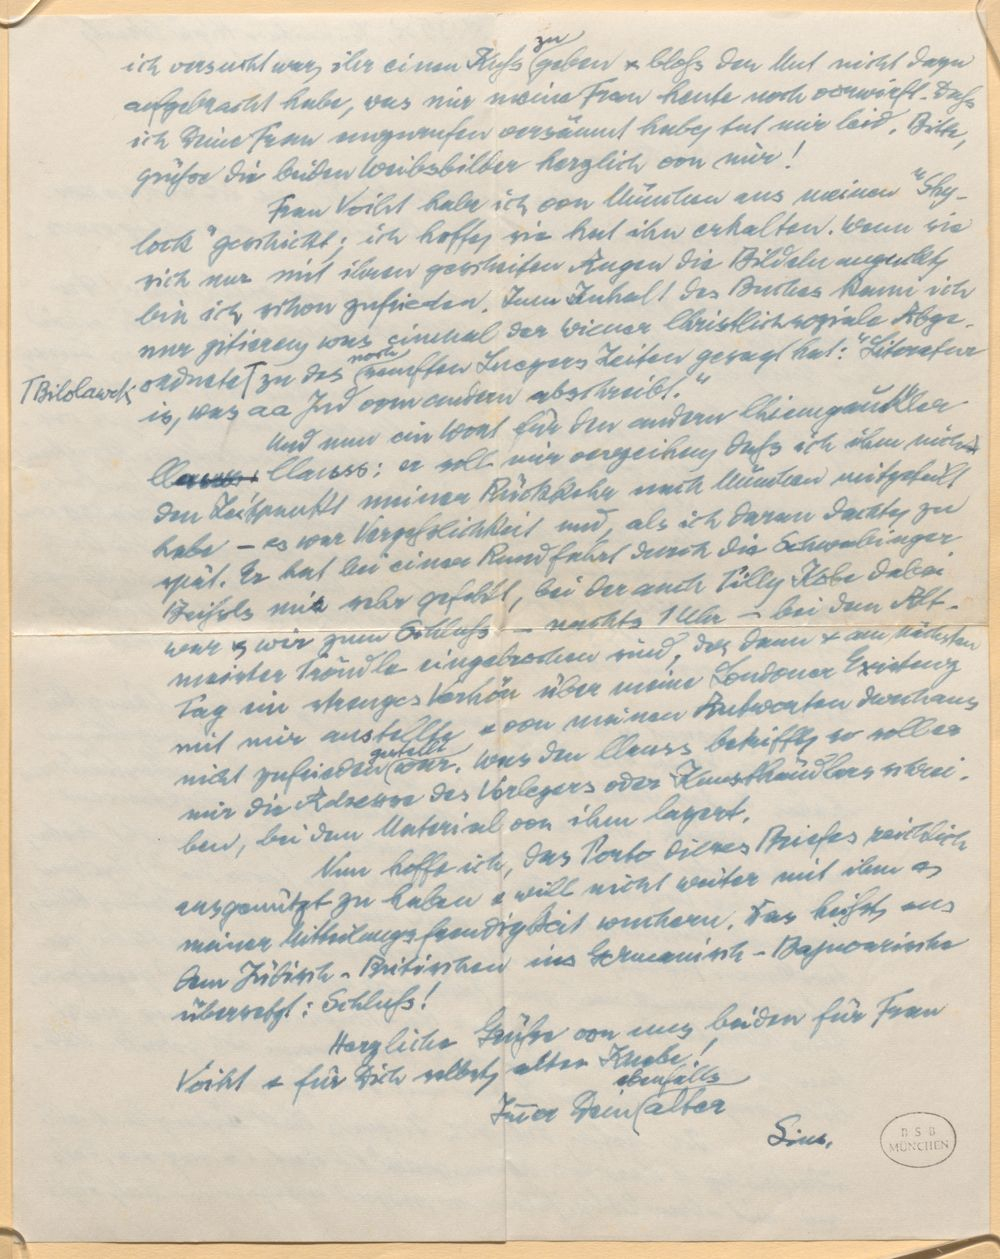 ich versucht war, ihr einen Kuß zu geben & bloß den Mut nicht dazu
aufgebracht habe, was mir meine Frau heute noch vorwirft. Daß
ich Deine Frau anzurufen versäumt habe, tut mir leid. Bitte,
grüße die beiden Weibsbilder herzlich von mir!
Frau Voiht habe ich von München aus meinen "Shy-
lock" geschickt; ich hoffe, sie hat ihn erhalten. Wenn sie
sich nur mit ihren gescheiten Augen die Bildeln anguckt,
bin ich schon zufrieden. Zum Inhalt des Buches kann ich
nur zitieren, was einmal der wiener christlichsoziale Abge-
ordnete ⌈ zu des noch sanften Luegers Zeiten gesagt hat: "Literatur
⌈ Bilolawek
is, was aa Jud vom andern abschreibt."
Und nun ein Wort für den andern Chiemgau
Clauss: er soll mir verzeihen, daß ich ihm nicht
den Zeitpunkt meiner Rückkehr nach München mitgeteilt
habe – es war Vergeßlichkeit und, als ich daran dachte, zu
spät. Er hat bei einer Rundfahrt durch die Schwabinger
Beisels mir sehr gefehlt, bei der auch Tilly Kobe dabei
war & wir zum Schluß – nachts 1 Uhr – bei dem Alt-
meister Tröndle eingebrochen sind, der dann & am nächsten
Tag ein strenges Verhör über meine Londoner Existenz
mit mir anstellte & von meinen Antworten durchaus
nicht zufrieden gestellt war. Was den Clauss betrifft, so soll er
mir die Adresse des Verlegers oder Kunsthändlers schrei-
ben, bei dem Material von ihm lagert.
Nun hoffe ich, das Porto dieses Briefes reichlich
ausgenützt zu haben & will nicht weiter mit ihm &
meiner Mitteilungsfreudigkeit wuchern. Das heißt, aus
dem Jüdisch-Britischen ins Germanisch-Bajuvarische
übersetzt: Schluß!
Herzliche Grüße von uns beiden für Frau
Voiht & für Dich selbst, alter Knabe!
Immer Dein ebenfalls alter
Sins.
BSB
MÜNCHEN